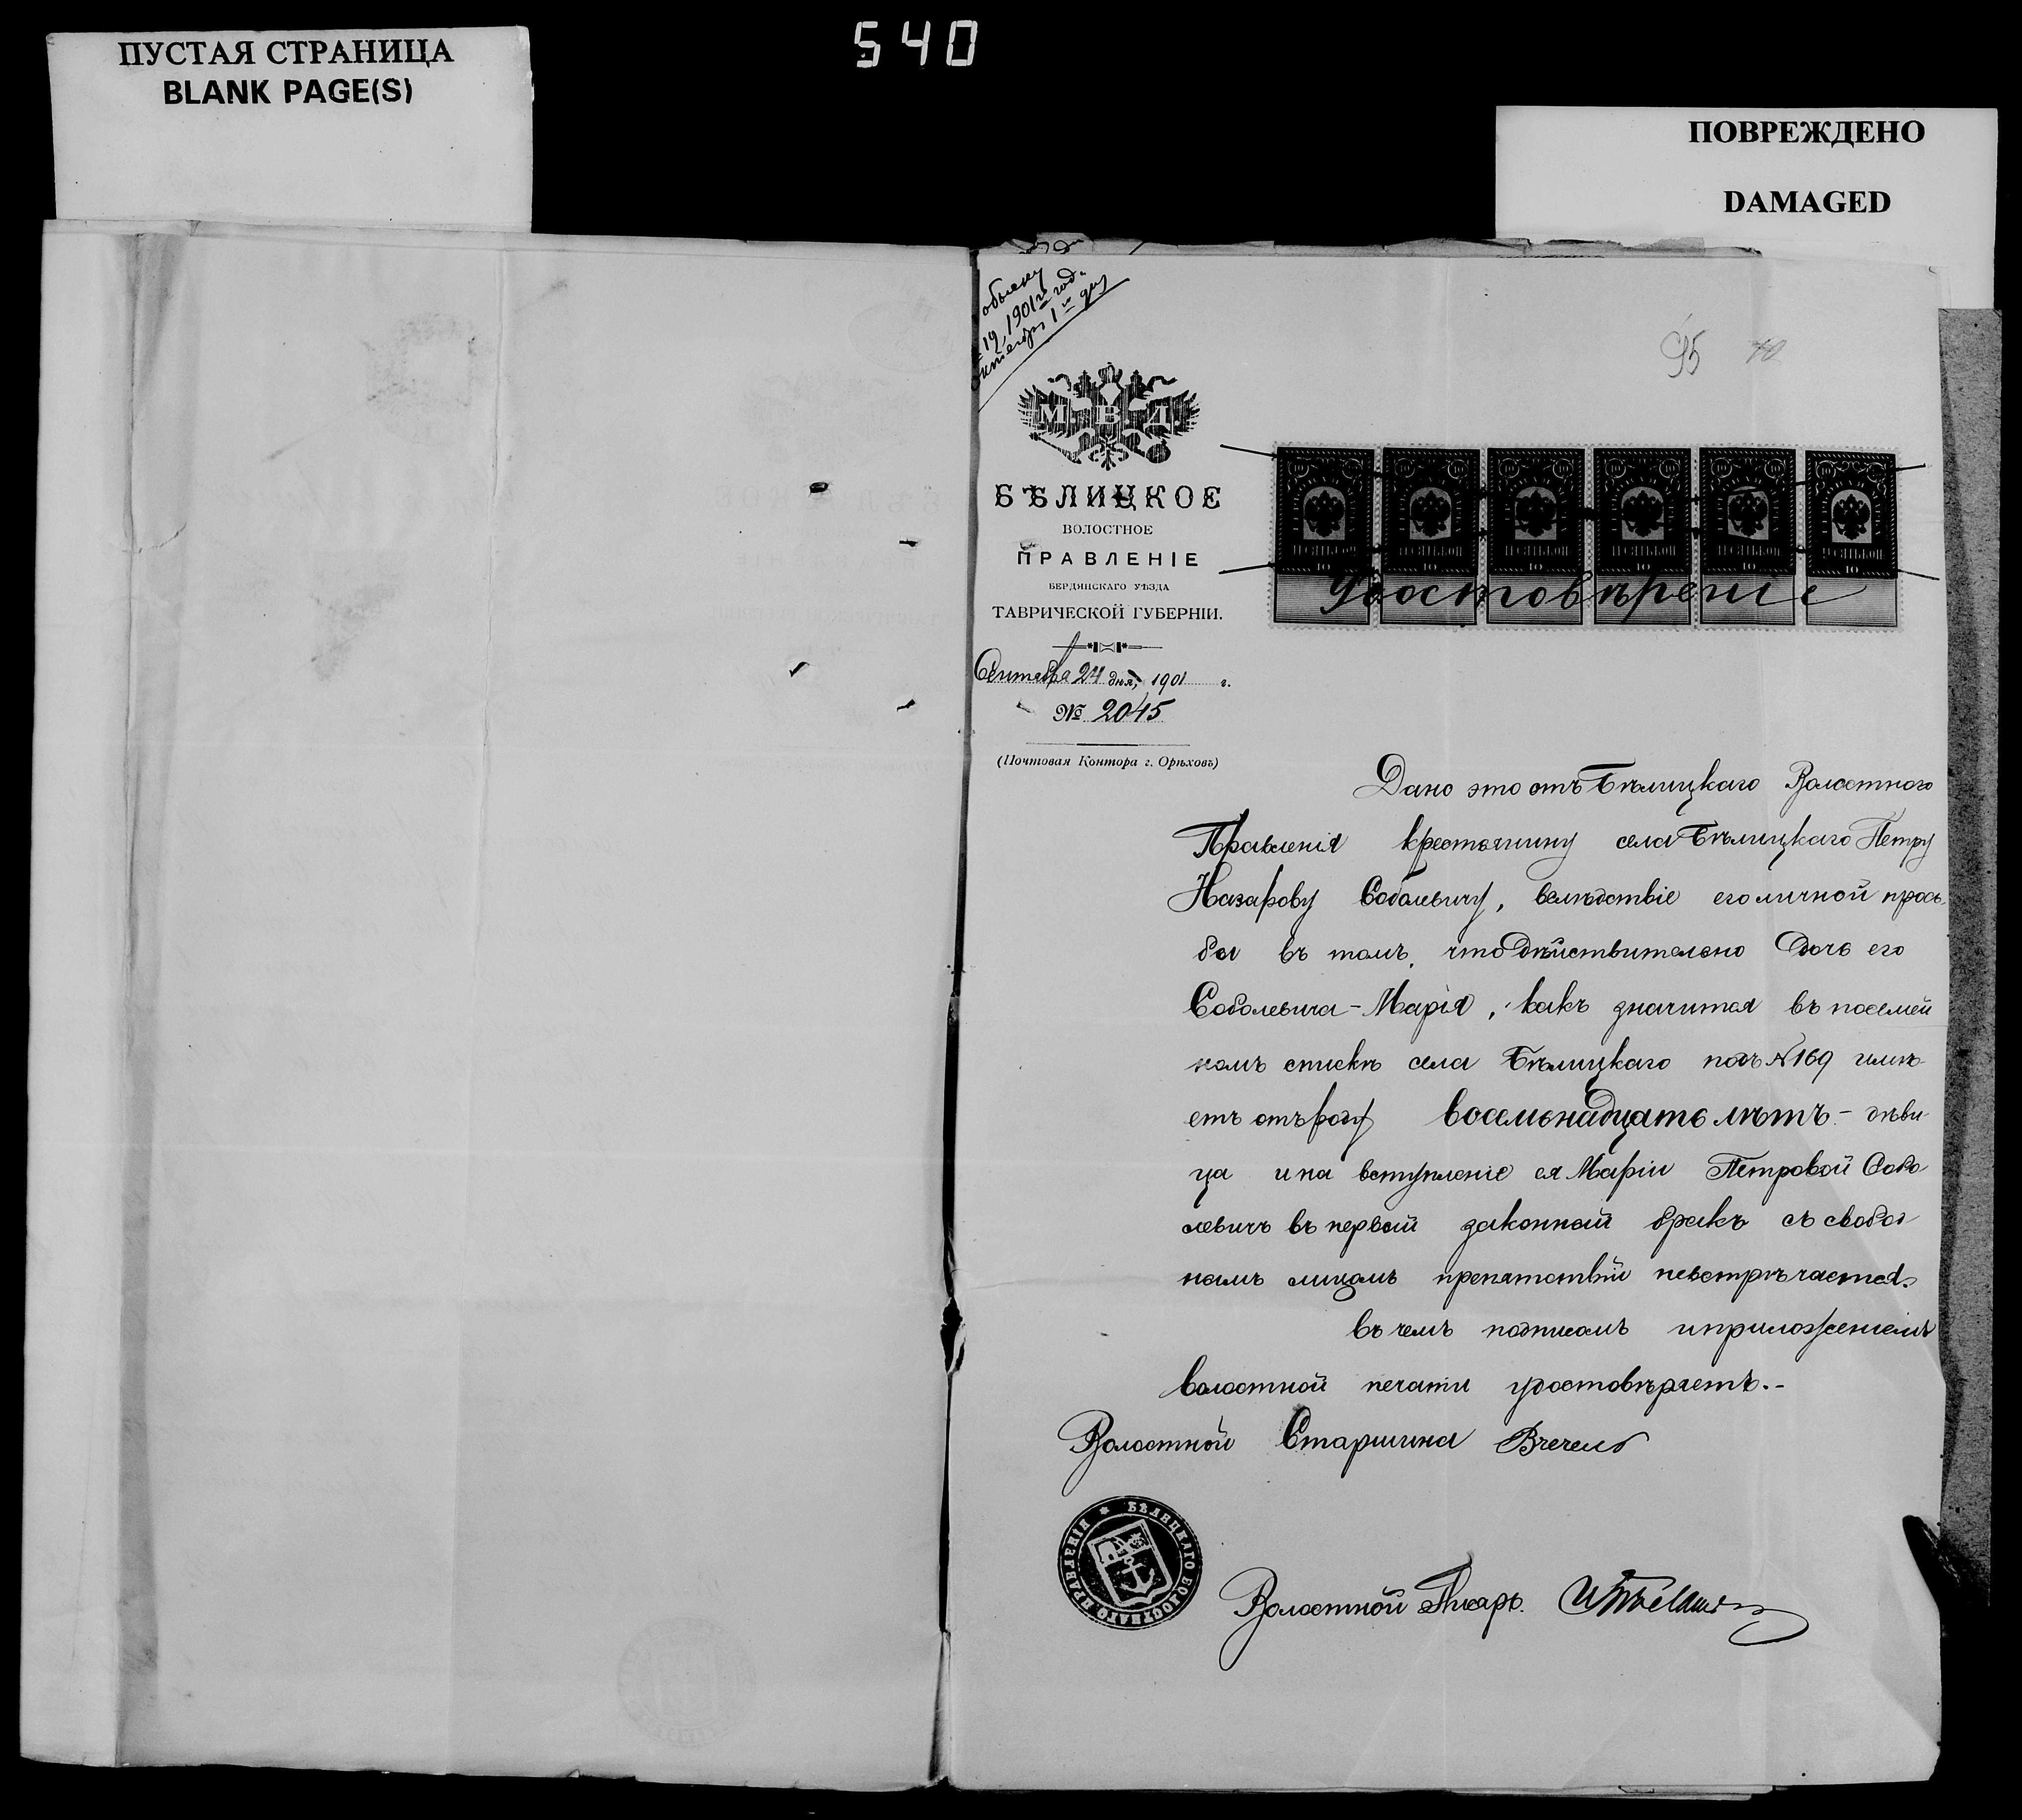 ПУСТАЯ СТРАНИЦА
BLANK PAGE(S)
540
ПОВРЕЖДЕНО
DAMAGED
обыску
19, 1901го год.
октября 1го дня
95 70
М В Д
БѢЛИЦКОЕ
ВОЛОСТНОЕ
ПРАВЛЕНІЕ
БЕРДЯНСКАГО УѢЗДА
ТАВРИЧЕСКОЙ ГУБЕРНІИ.
Сентября 24 дня, 1901 г.
№ 2045
(Почтовая Контора г. Орѣховъ)
Удостовѣреніе
Дано это отъ Бѣлицкаго Волостного
Правленія крестьянину села Бѣлицкаго Петру
Назарову Соболевичу, вслѣдствіе его личной прось-
бы въ томъ, что дѣйствительно дочь его
Соболевича - Марія, какъ значится въ посемей
номъ спискѣ села Бѣлицкаго подъ № 169 имѣ-
етъ отъ роду восемьнадцать лѣтъ - дѣви
ца и на вступленіе ея Маріи Петровой Собо
левичъ въ первый законный бракъ съ свобод
нымъ лицомъ препятствій невстрѣчается.
въ чемъ подписомъ и приложеніемъ
волостной печати удостовѣряетъ.-
Волостной Старшина
БѢЛИЦКАГО ВОЛОСТНАГО ПРАВЛЕНІЯ
Волостной Писарь.